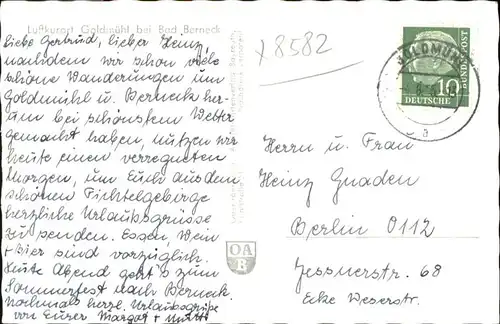 Luftkurort Goldmühl bei Bad Berneck
Liebe Gertrud, lieber Heinz,
nachdem wir schon viele
schöne Wanderungen um
Goldmühl u. Berneck her-
um bei schönstem Wetter
gemacht haben, nutzen wir
heute einen verregneten
Morgen, um Euch aus dem
schönen Fichtelgebirge
herzliche Urlaubsgrüsse
zu senden. Essen, Wein
+ Bier sind vorzüglich.
Heute Abend geht's zum
Sommerfest nach Berneck.
Nochmals herzl. Urlaubsgrüße
von Eurer Margot +
x8582
GOLDMÜHL
a
10
DEUTSCHE
BUNDESPOST
OA
B
Herrn u. Frau
Heinz Gnaden
Berlin O112
Jessnerstr. 68
Ecke Weserstr.